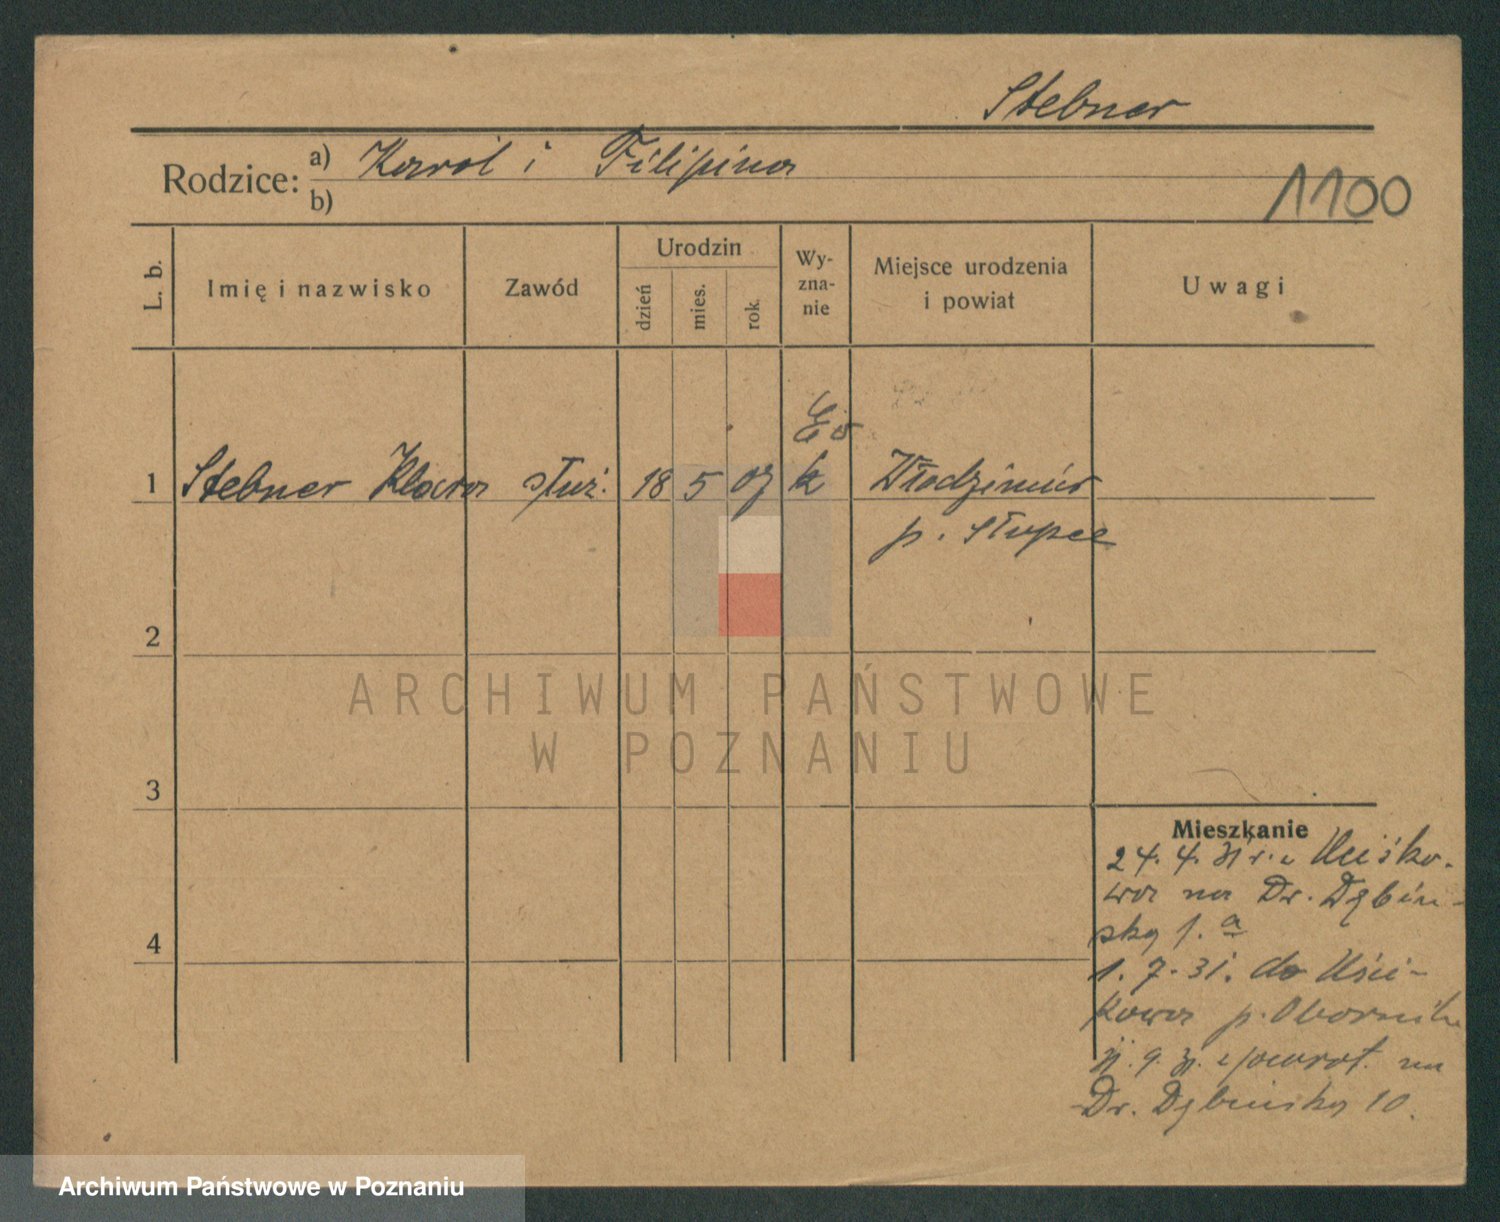 Stebner
Rodzice: a) Karol i Filipina
b)
1100
L. b. Imię i nazwisko Zawód Urodzin dzień mies. rok Wy-zna-nie Miejsce urodzenia i powiat Uwagi
Ew
1 Stebner Klara służ. 18 5 07 k Włodzimir
p. Słupce
2
ARCHIWUM PAŃSTWOWE
W POZNANIU
3
Mieszkanie
24. 4. 31 r. z Uciśko-
wa na Dr. Dębiń-
ską 1. a
4
1. 7. 31. do Uści-
kowa p. Oborniki
9. 31. z powrot. na
Dr. Dębińską 10.
Archiwum Państwowe w Poznaniu